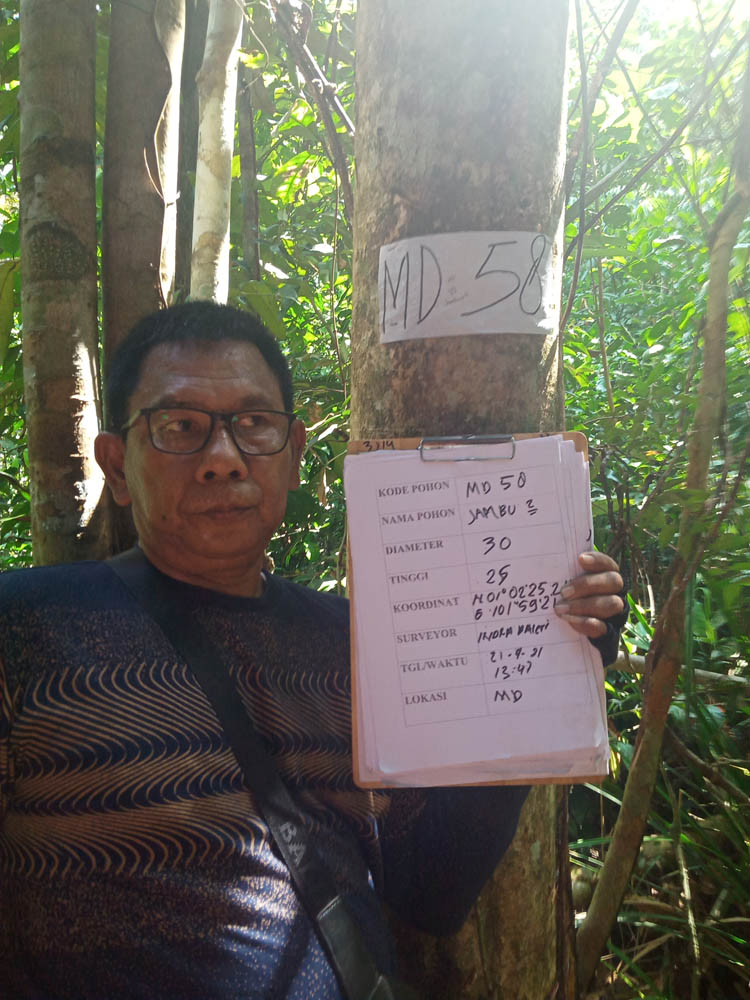 MD - 58
3314
KODE POHON MD 58
NAMA POHON JAMBU 2
DIAMETER 30
TINGGI 25
KOORDINAT N 01° 02' 25.2
E 101° 59' 21
SURVEYOR INDRA
TGL/WAKTU 21-9-21
13:47
LOKASI MD